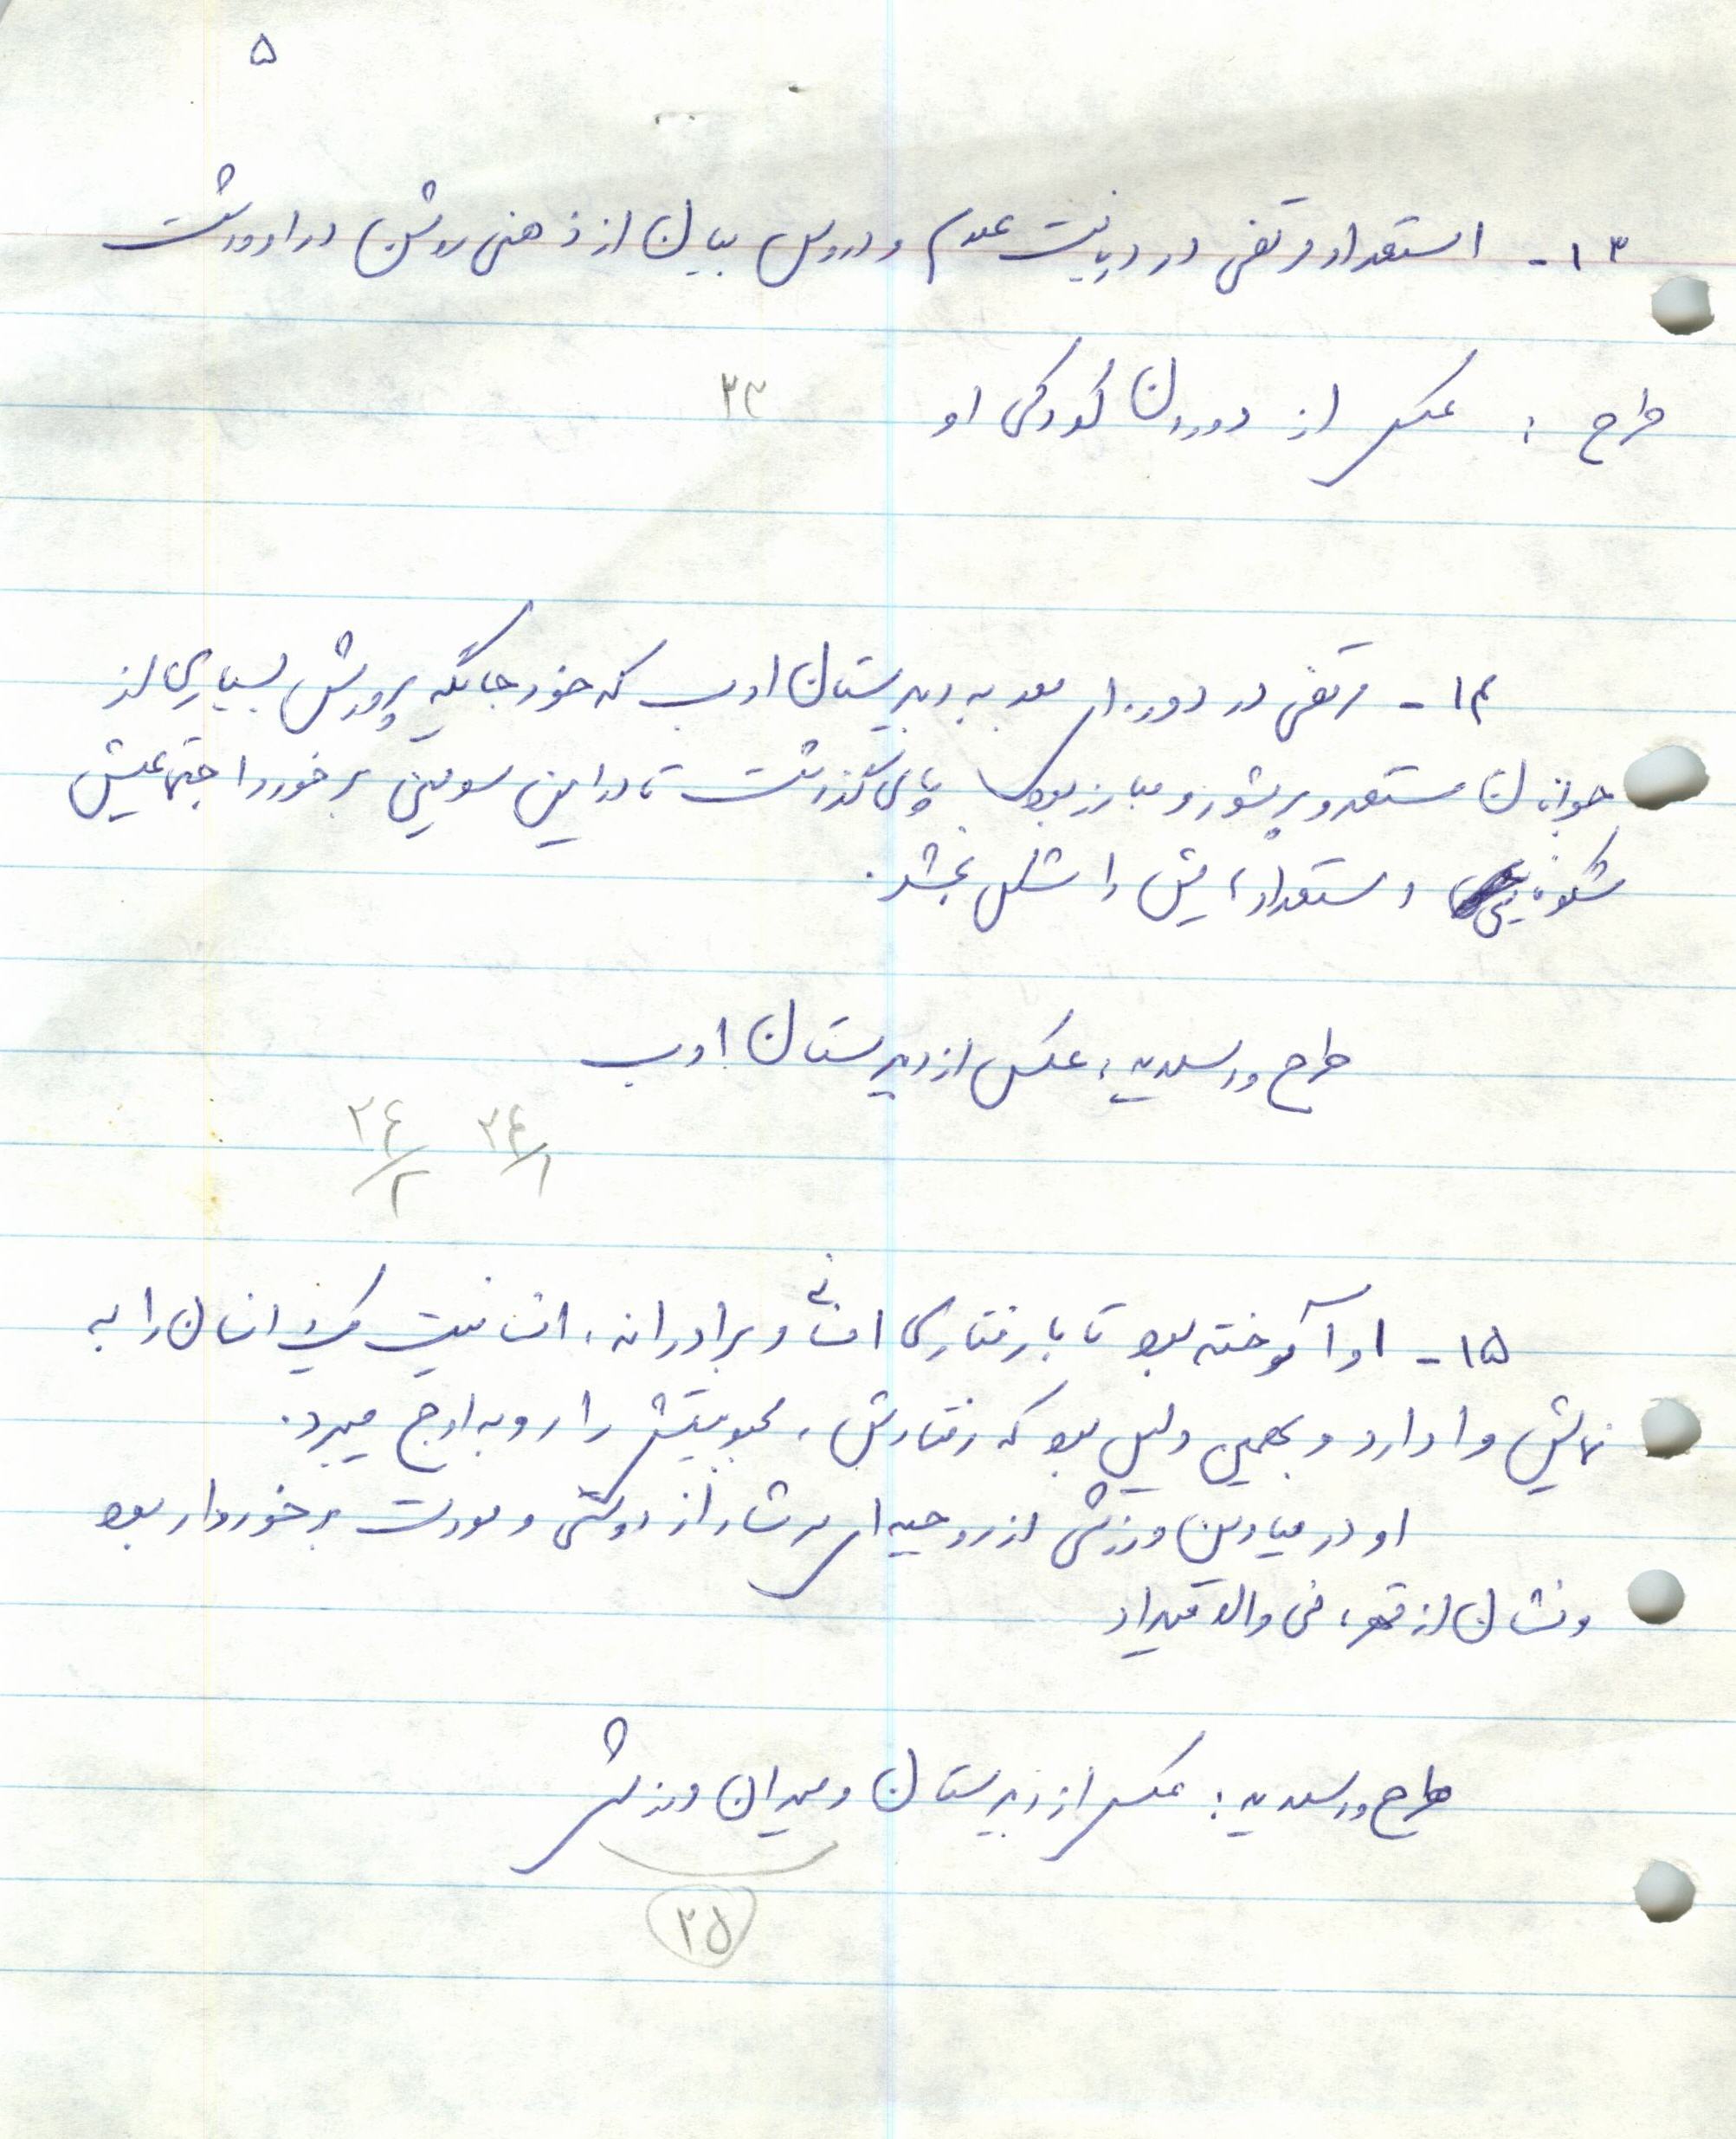 ۵
۱۳- استعداد مرتضی در دریافت علوم و دروس بیان از ذهنی روشن در او داشت
طرح : عکس از دوران کودکی او
۳۳
۱۴- مرتضی در دوره‌ای بعد به دبیرستان ادب که خود جایگه پرورش بسیاری از
جوانان مستعد و پرشور و مبارز بود پای گذاشت تا در این سومین برخورد اجتماعیش
شکوفایی استعدادهایش را شکل بخشد.
طرح در اسلاید : عکس از دبیرستان ادب
۳۴/۱ ۳۴/۲
۱۵- او آموخته بود تا با رفتاری انسانی و برادرانه، انسانیت یک انسان را به
نمایش وا دارد و بهمین دلیل بود که رفتارش، محبوبیتش را رو به اوج میبرد.
او در میادین ورزشی از روحیه‌ای سرشار از دوستی و مودت برخوردار بود
و نشان از قهرمانی والا میداد
طرح در اسلاید : عکس از دبیرستان و میدان ورزش
۳۵